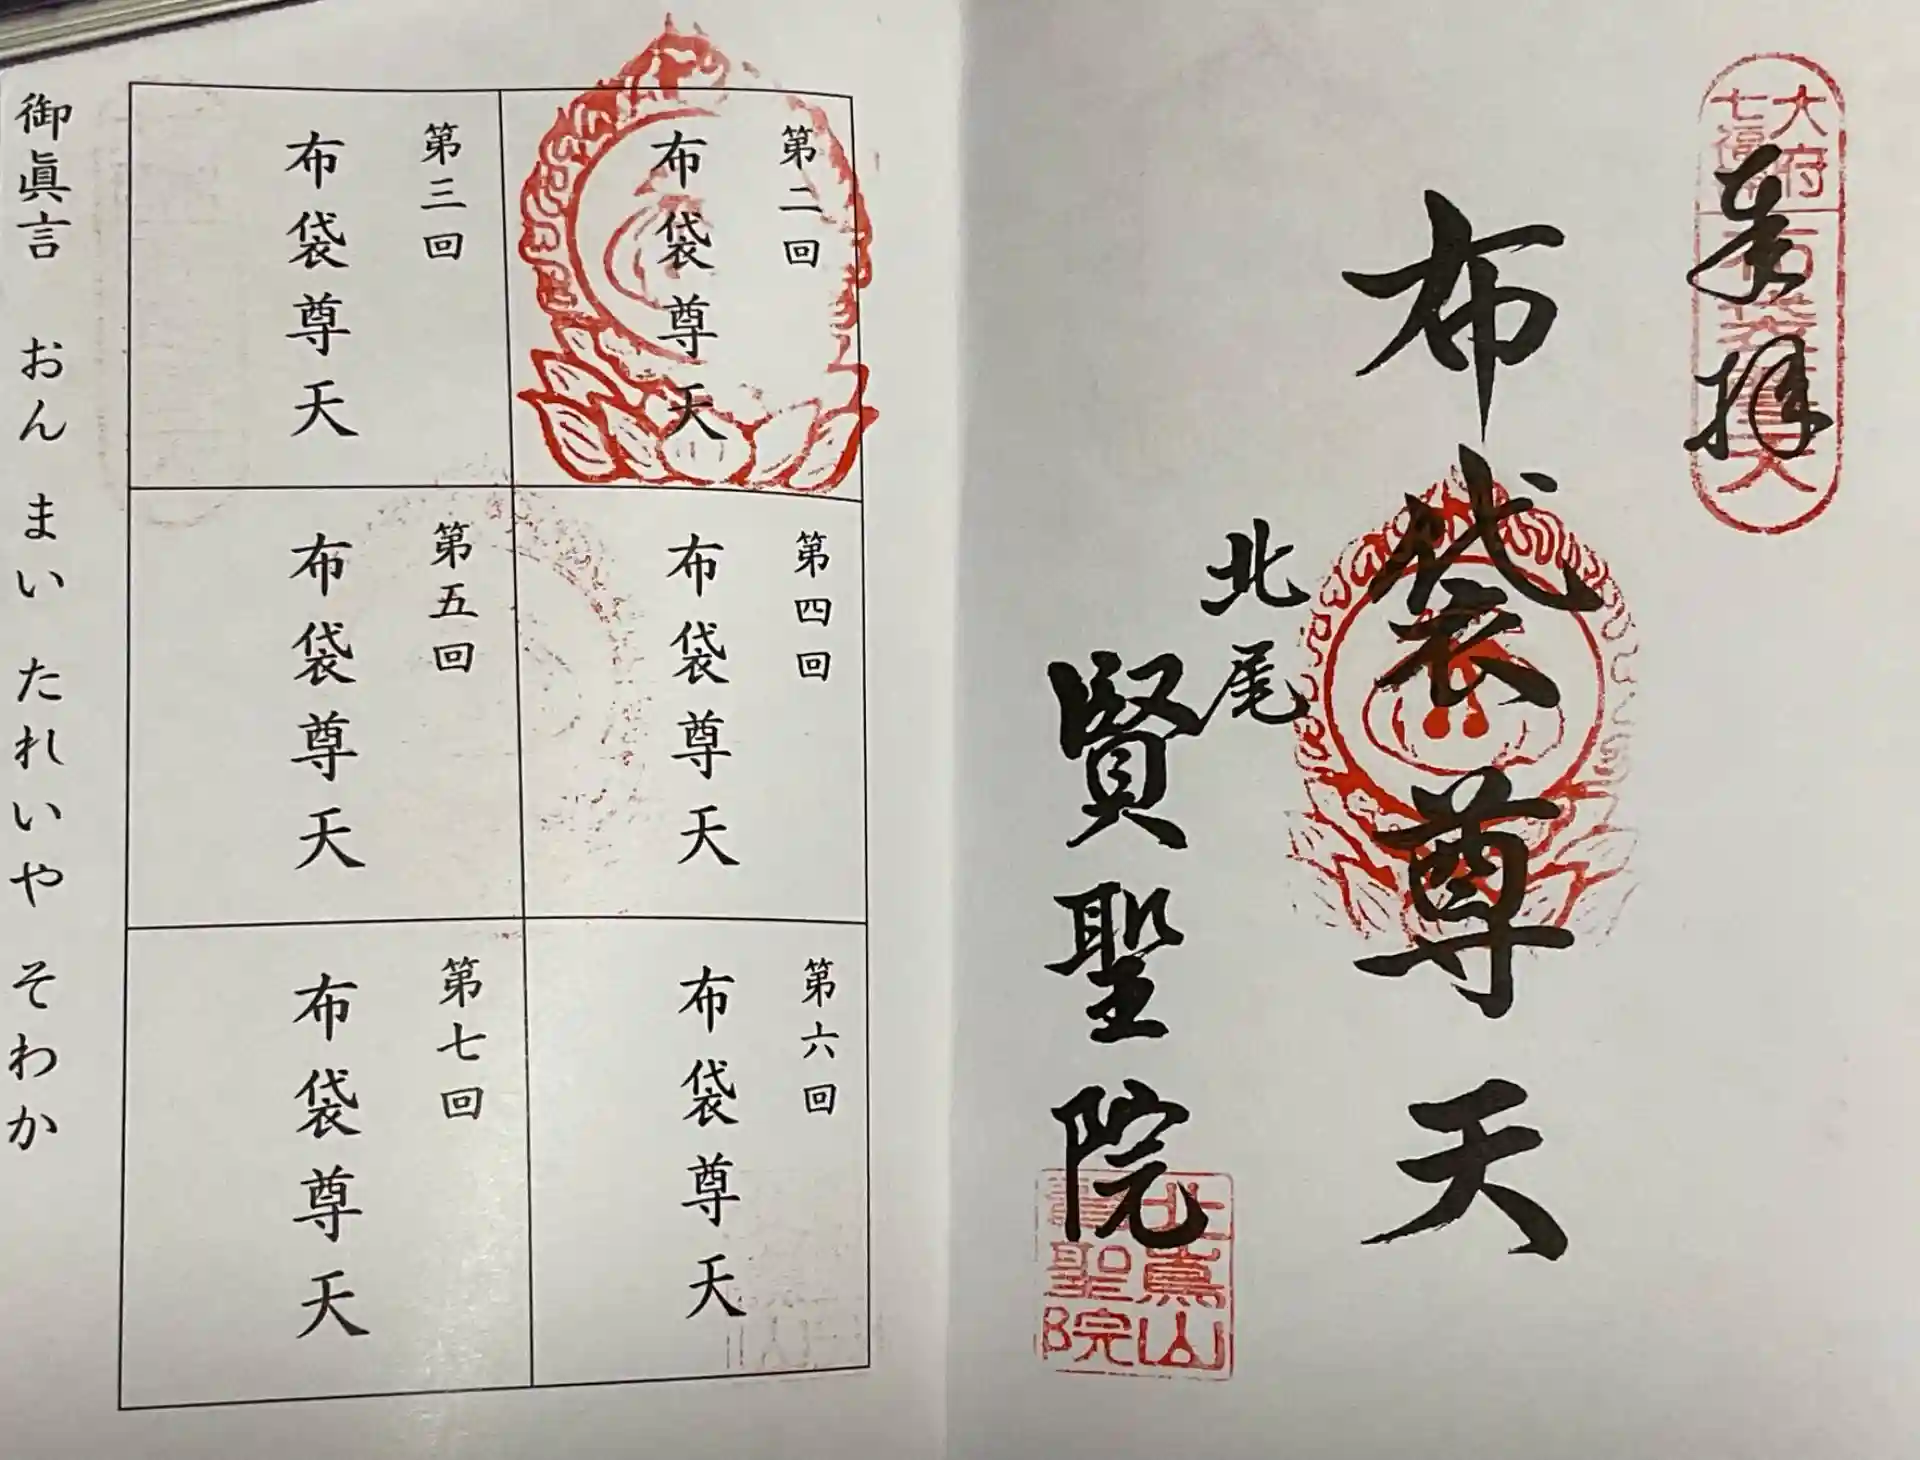 奉拝
大府
七福神
布袋尊天
布袋尊天
北尾
賢聖院
聖院
第二回
布袋尊天
第三回
布袋尊天
第四回
布袋尊天
第五回
布袋尊天
第六回
布袋尊天
第七回
布袋尊天
御眞言　おん　まい　たれいや　そわか